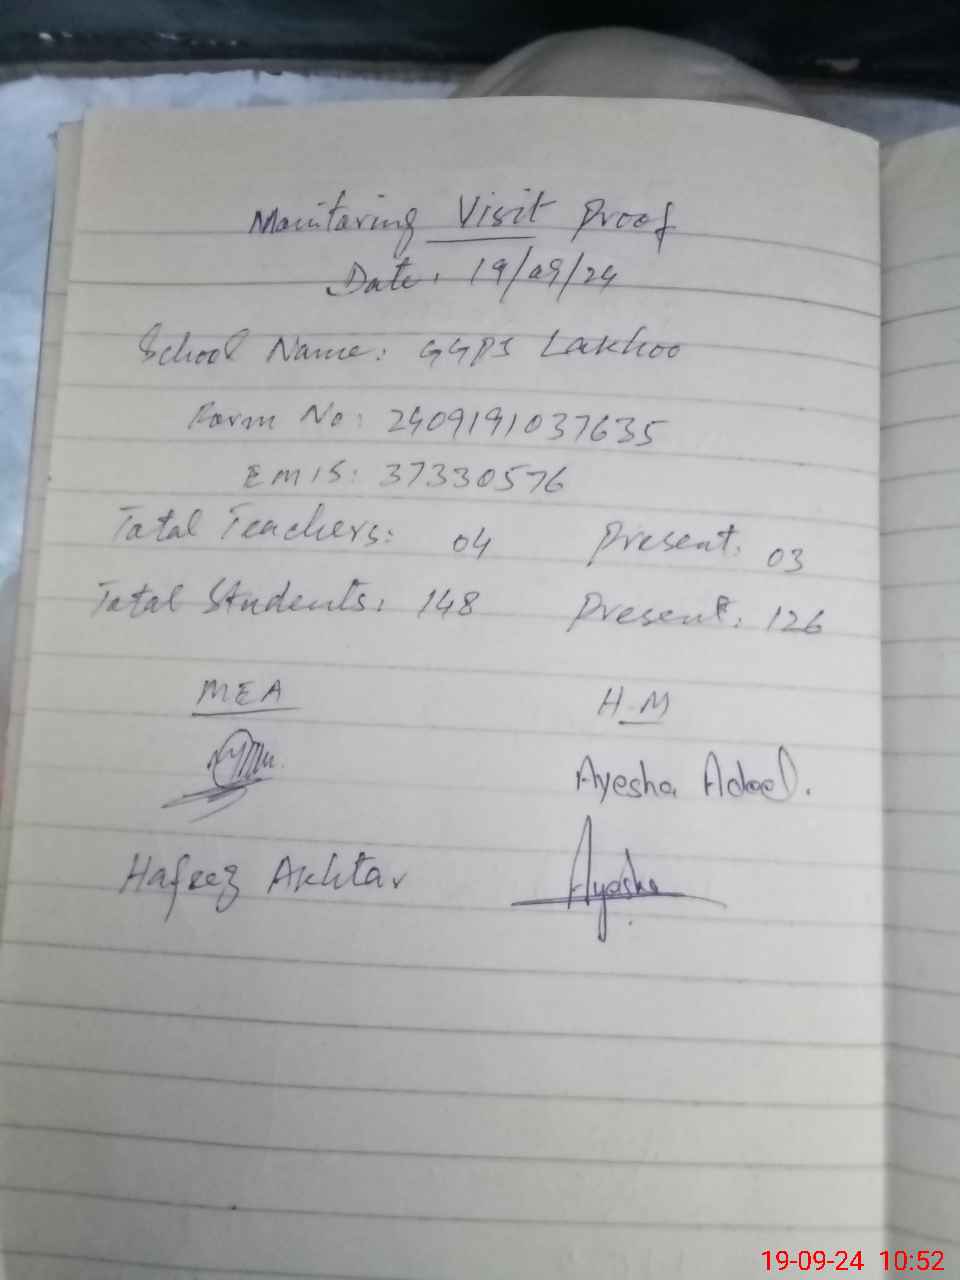 Monitoring Visit Proof
Date: 19/09/24
School Name: GGPS Lakhoo
Form No: 2409191037635
EMIS: 37330576
Total Teachers: 04 Present: 03
Total Students: 148 Present: 126
MEA H.M
Ayesha Adeel.
Hafeez Akhtar Ayesha
19-09-24 10:52